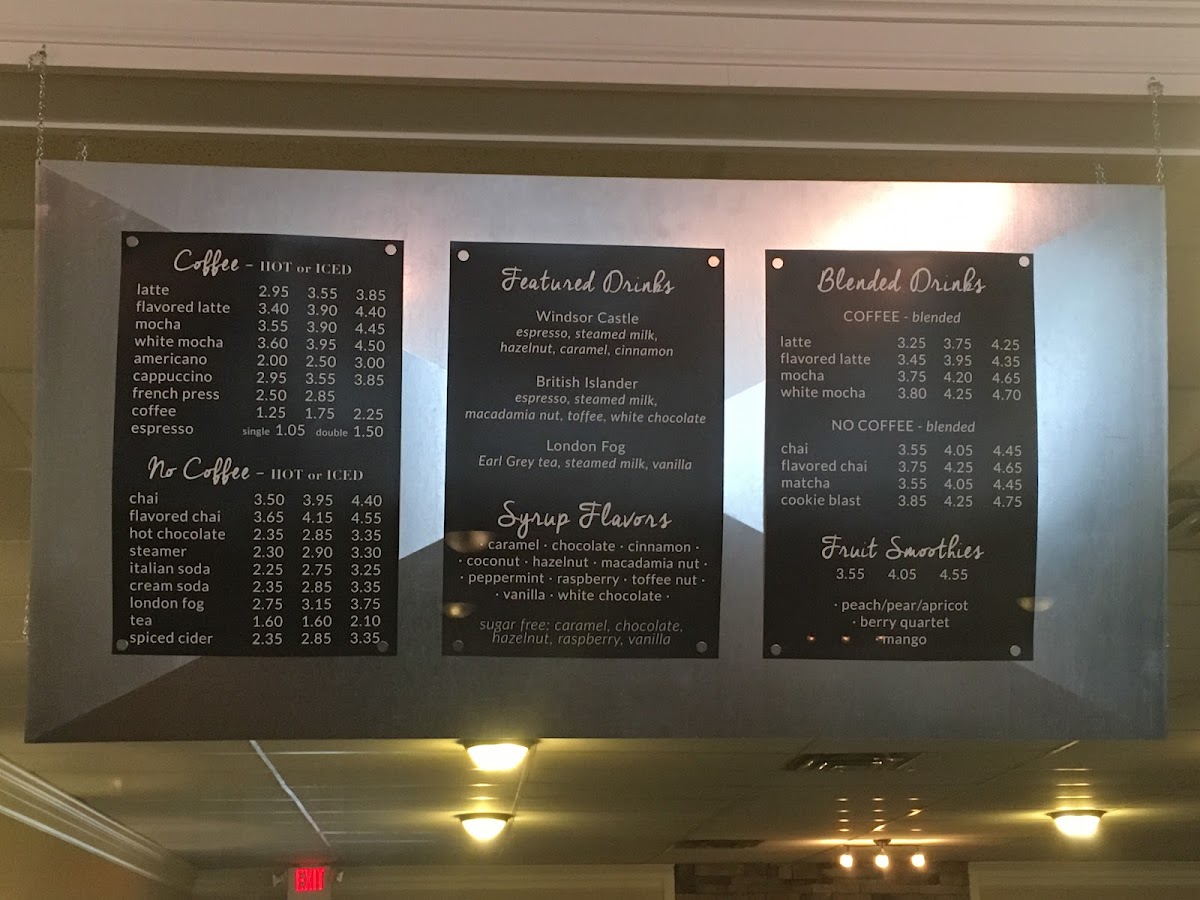 Coffee - HOT or ICED
latte 2.95 3.55 3.85
flavored latte 3.40 3.90 4.40
mocha 3.55 3.90 4.45
white mocha 3.60 3.95 4.50
americano 2.00 2.50 3.00
cappuccino 2.95 3.55 3.85
french press 2.50 2.85
coffee 1.25 1.75 2.25
espresso single 1.05 double 1.50
No Coffee - HOT or ICED
chai 3.50 3.95 4.40
flavored chai 3.65 4.15 4.55
hot chocolate 2.35 2.85 3.35
steamer 2.30 2.90 3.30
italian soda 2.25 2.75 3.25
cream soda 2.35 2.85 3.35
london fog 2.75 3.15 3.75
tea 1.60 1.60 2.10
spiced cider 2.35 2.85 3.35
Featured Drinks
Windsor Castle
espresso, steamed milk,
hazelnut, caramel, cinnamon
British Islander
espresso, steamed milk,
macadamia nut, toffee, white chocolate
London Fog
Earl Grey tea, steamed milk, vanilla
Syrup Flavors
· caramel · chocolate · cinnamon ·
· coconut · hazelnut · macadamia nut ·
· peppermint · raspberry · toffee nut ·
· vanilla · white chocolate ·
sugar free: caramel, chocolate,
hazelnut, raspberry, vanilla
Blended Drinks
COFFEE - blended
latte 3.25 3.75 4.25
flavored latte 3.45 3.95 4.35
mocha 3.75 4.20 4.65
white mocha 3.80 4.25 4.70
NO COFFEE - blended
chai 3.55 4.05 4.45
flavored chai 3.75 4.25 4.65
matcha 3.55 4.05 4.45
cookie blast 3.85 4.25 4.75
Fruit Smoothies
3.55 4.05 4.55
· peach/pear/apricot
· berry quartet
· mango
EXIT